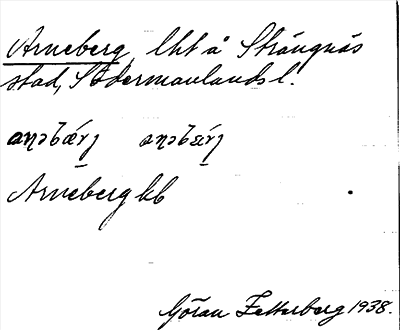 Arneberg, lht å Strängnäs
stad, Södermanlands l.
Arneberg kb
Göran Zetterberg 1938.